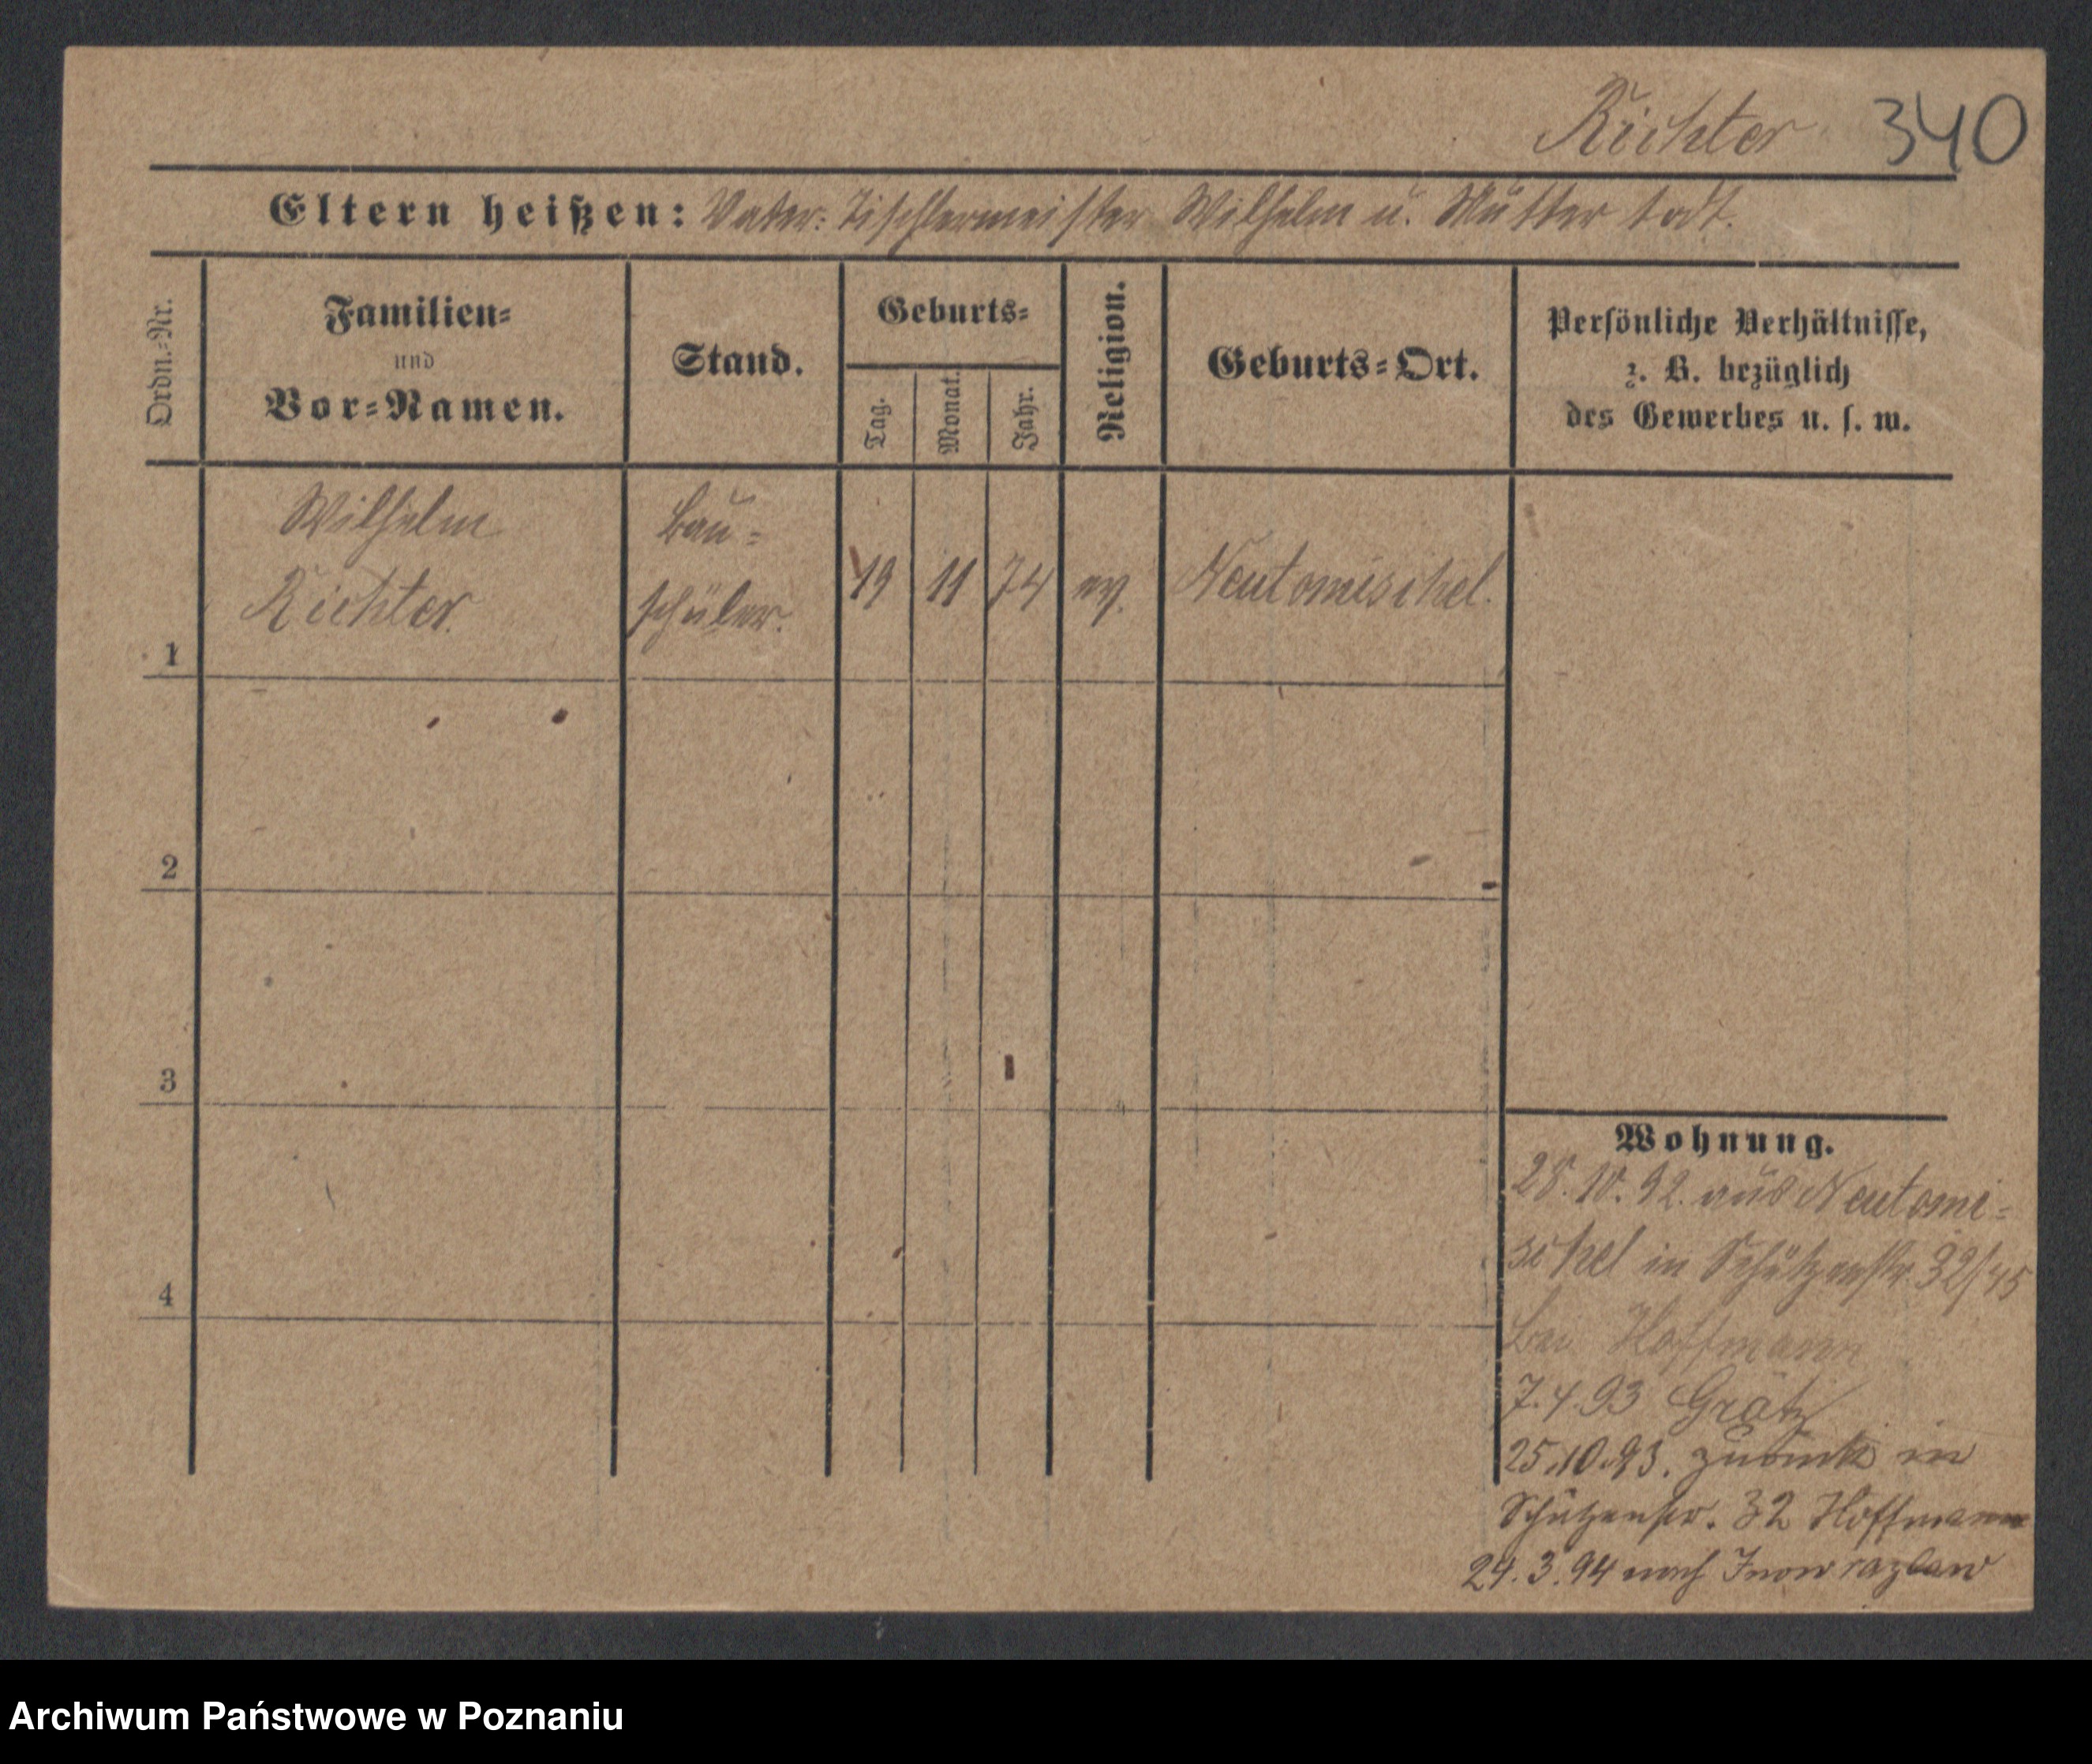 Richter 340
Eltern heißen: Vater: Tischlermeister Wilhelm u. Mutter todt.
Ordn.-Nr.
Familien-
und
Vor-Namen.
Stand.
Geburts-
Tag.
Monat.
Jahr.
Religion.
Geburts-Ort.
Persönliche Verhältnisse,
z. B. bezüglich
des Gewerbes u. s. w.
Wilhelm
Richter.
Bau-
schüler.
19 11 74 ev. Neutomischel.
1
2
3
4
Wohnung.
28.10.92. aus Neutomi-
schel in Schützenstr. 32/45
bei Hoffmann
7.4.93 Grätz
25.10.93. zurück in
Schützenstr. 32 Hoffmann
24.3.94 nach Inowrazlaw
Archiwum Państwowe w Poznaniu